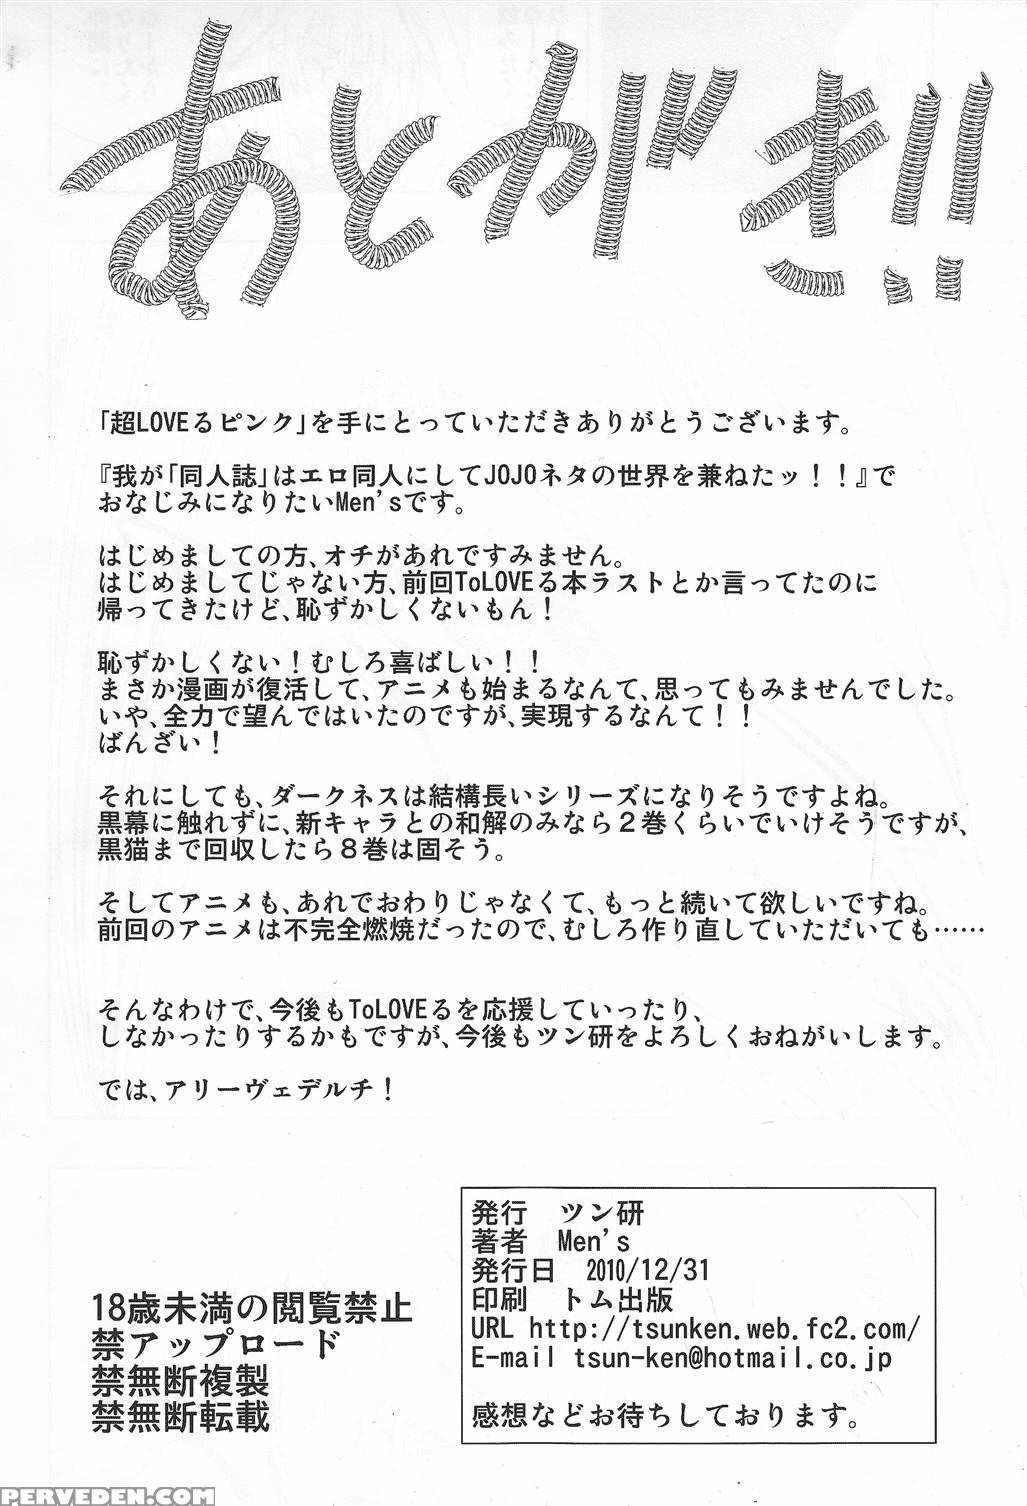 あとがき!!
「超LOVEるピンク」を手にとっていただきありがとうございます。
『我が「同人誌」はエロ同人にしてJOJOネタの世界を兼ねたッ！！』で
おなじみになりたいMen'sです。
はじめましての方、オチがあれですみません。
はじめましてじゃない方、前回ToLOVEる本ラストとか言ってたのに
帰ってきたけど、恥ずかしくないもん！
恥ずかしくない！むしろ喜ばしい！！
まさか漫画が復活して、アニメも始まるなんて、思ってもみませんでした。
いや、全力で望んではいたのですが、実現するなんて！！
ばんざい！
それにしても、ダークネスは結構長いシリーズになりそうですよね。
黒幕に触れずに、新キャラとの和解のみなら２巻くらいでいけそうですが、
黒猫まで回収したら８巻は固そう。
そしてアニメも、あれでおわりじゃなくて、もっと続いて欲しいですね。
前回のアニメは不完全燃焼だったので、むしろ作り直していただいても……
そんなわけで、今後もToLOVEるを応援していったり、
しなかったりするかもですが、今後もツン研をよろしくおねがいします。
では、アリーヴェデルチ！
18歳未満の閲覧禁止
禁アップロード
禁無断複製
禁無断転載
発行　ツン研
著者　Men's
発行日　2010/12/31
印刷　トム出版
URL http://tsunken.web.fc2.com/
E-mail tsun-ken@hotmail.co.jp
感想などお待ちしております。
PERVEDEN.COM